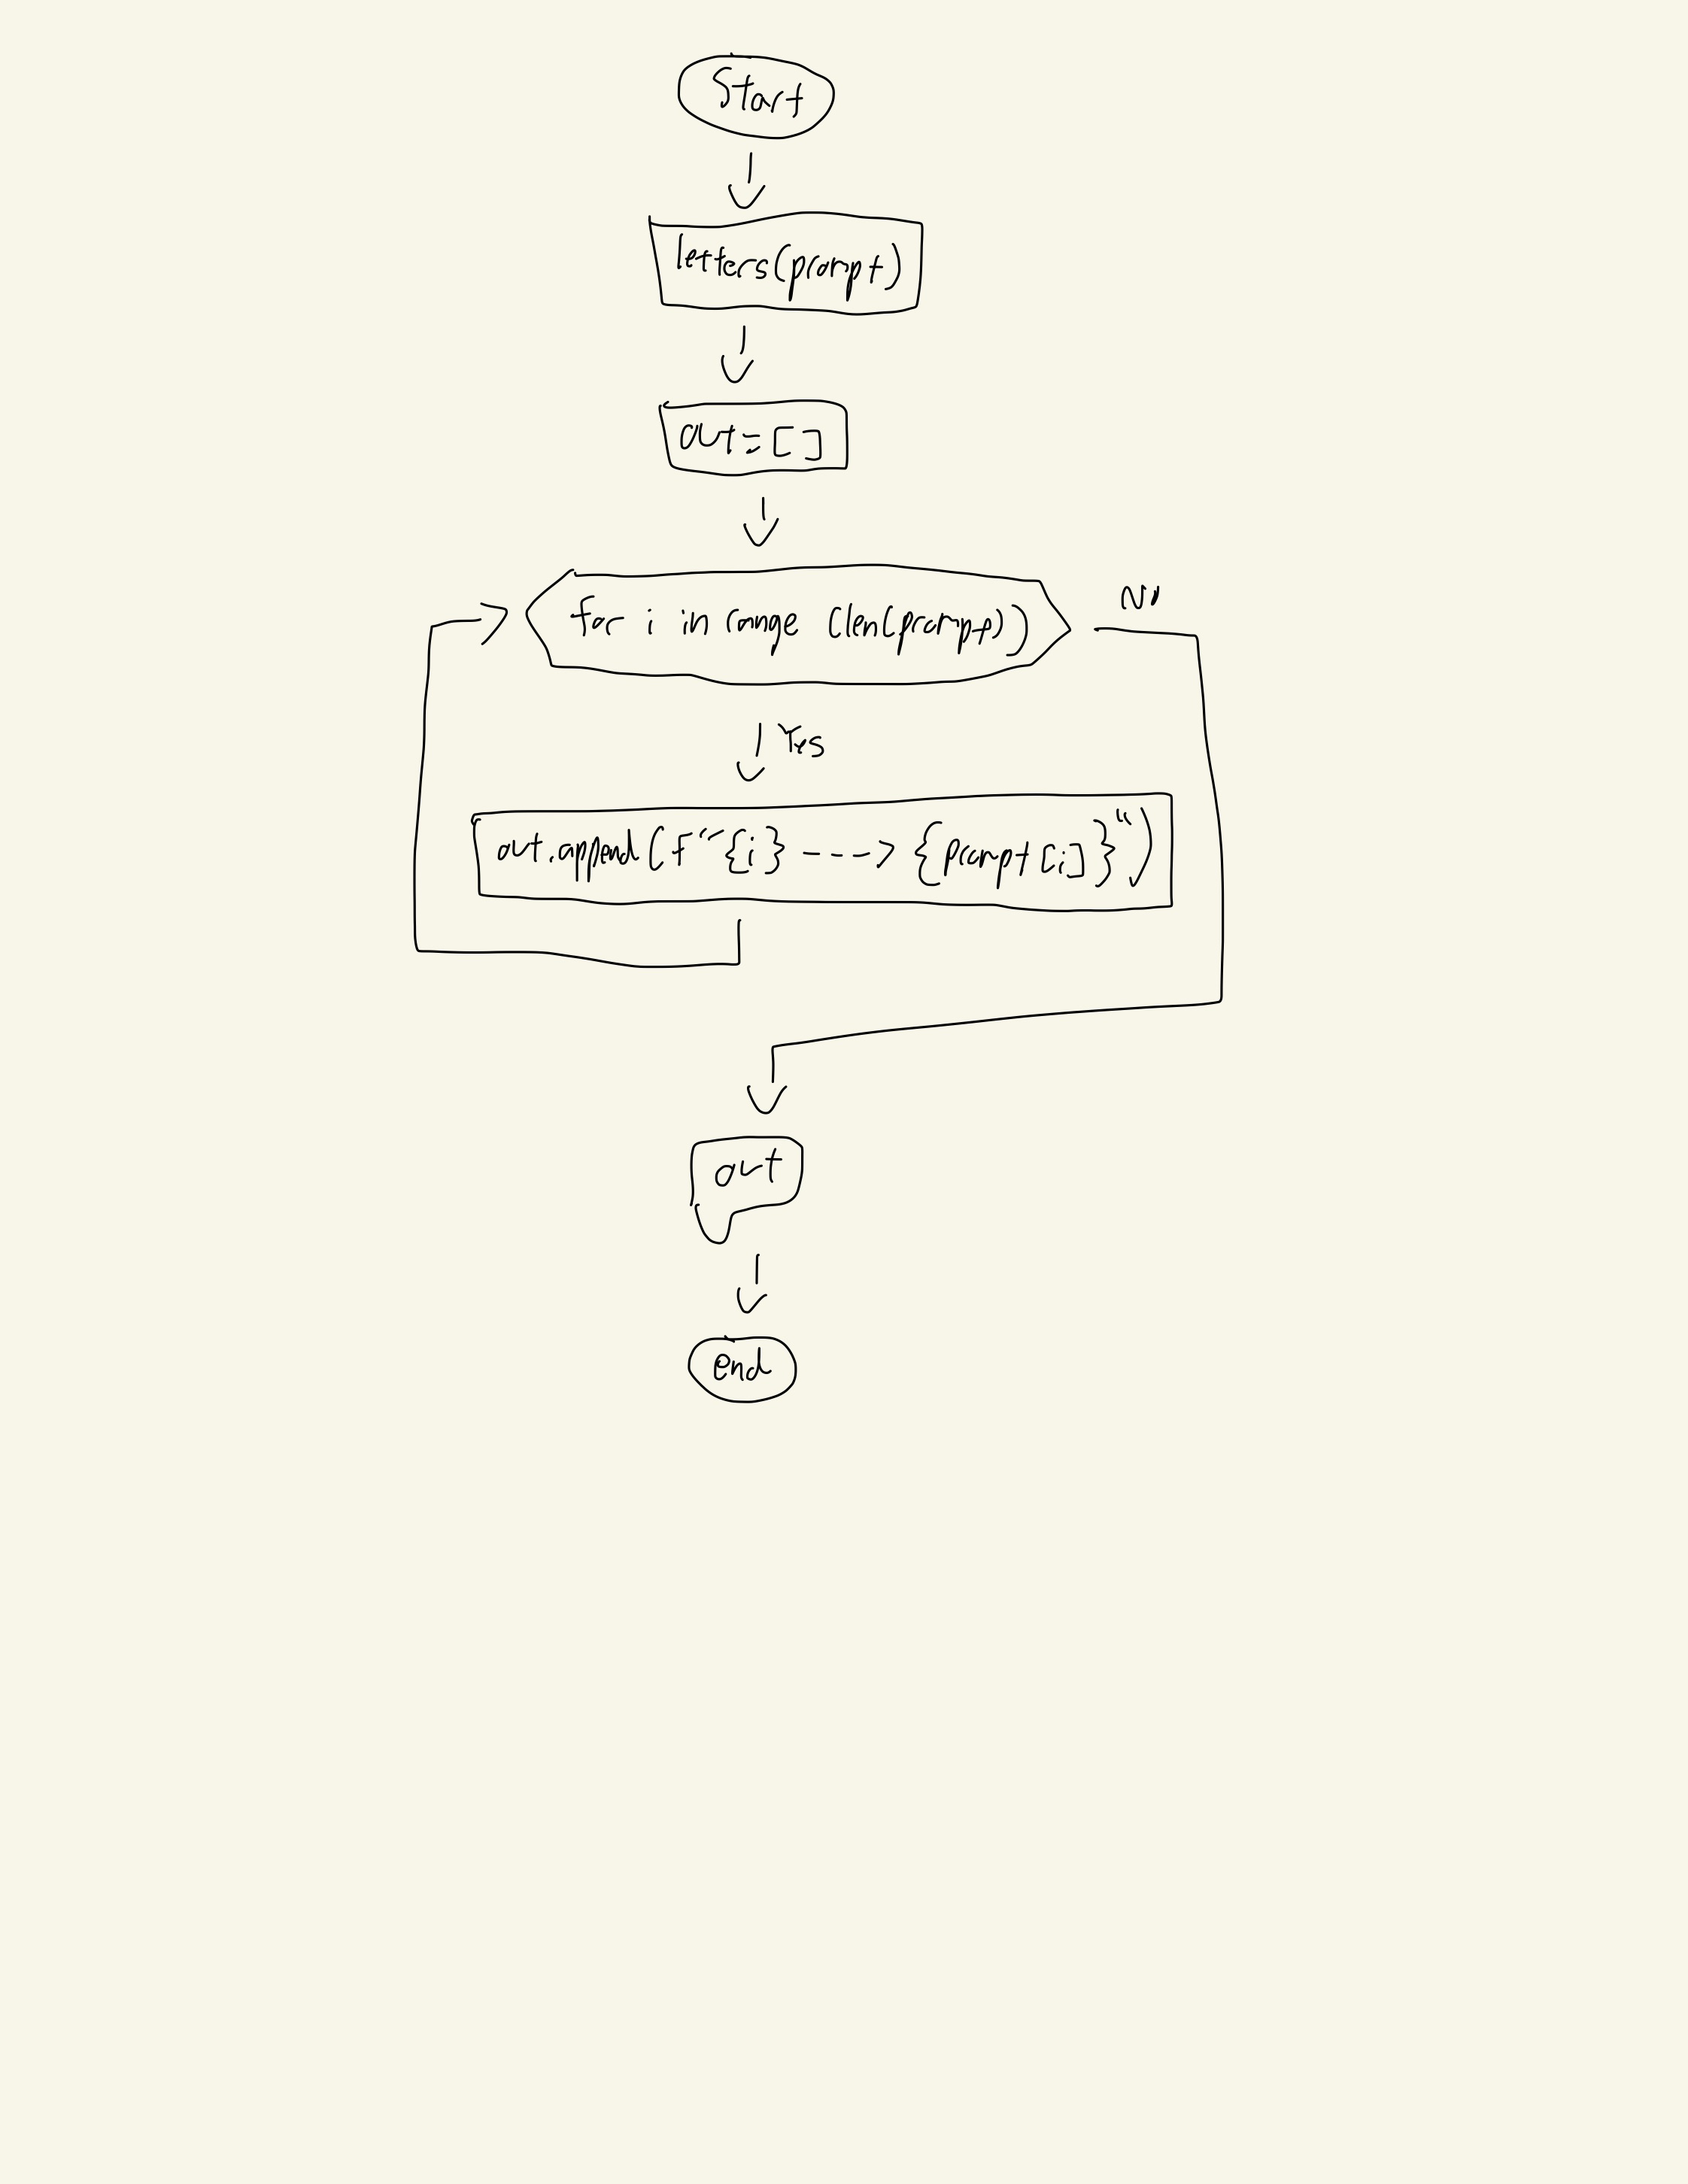 Start
letters(prompt)
out=[]
for i in range (len(prompt))
No
Yes
out.append(f"{i} ---> {prompt[i]}")
out
end